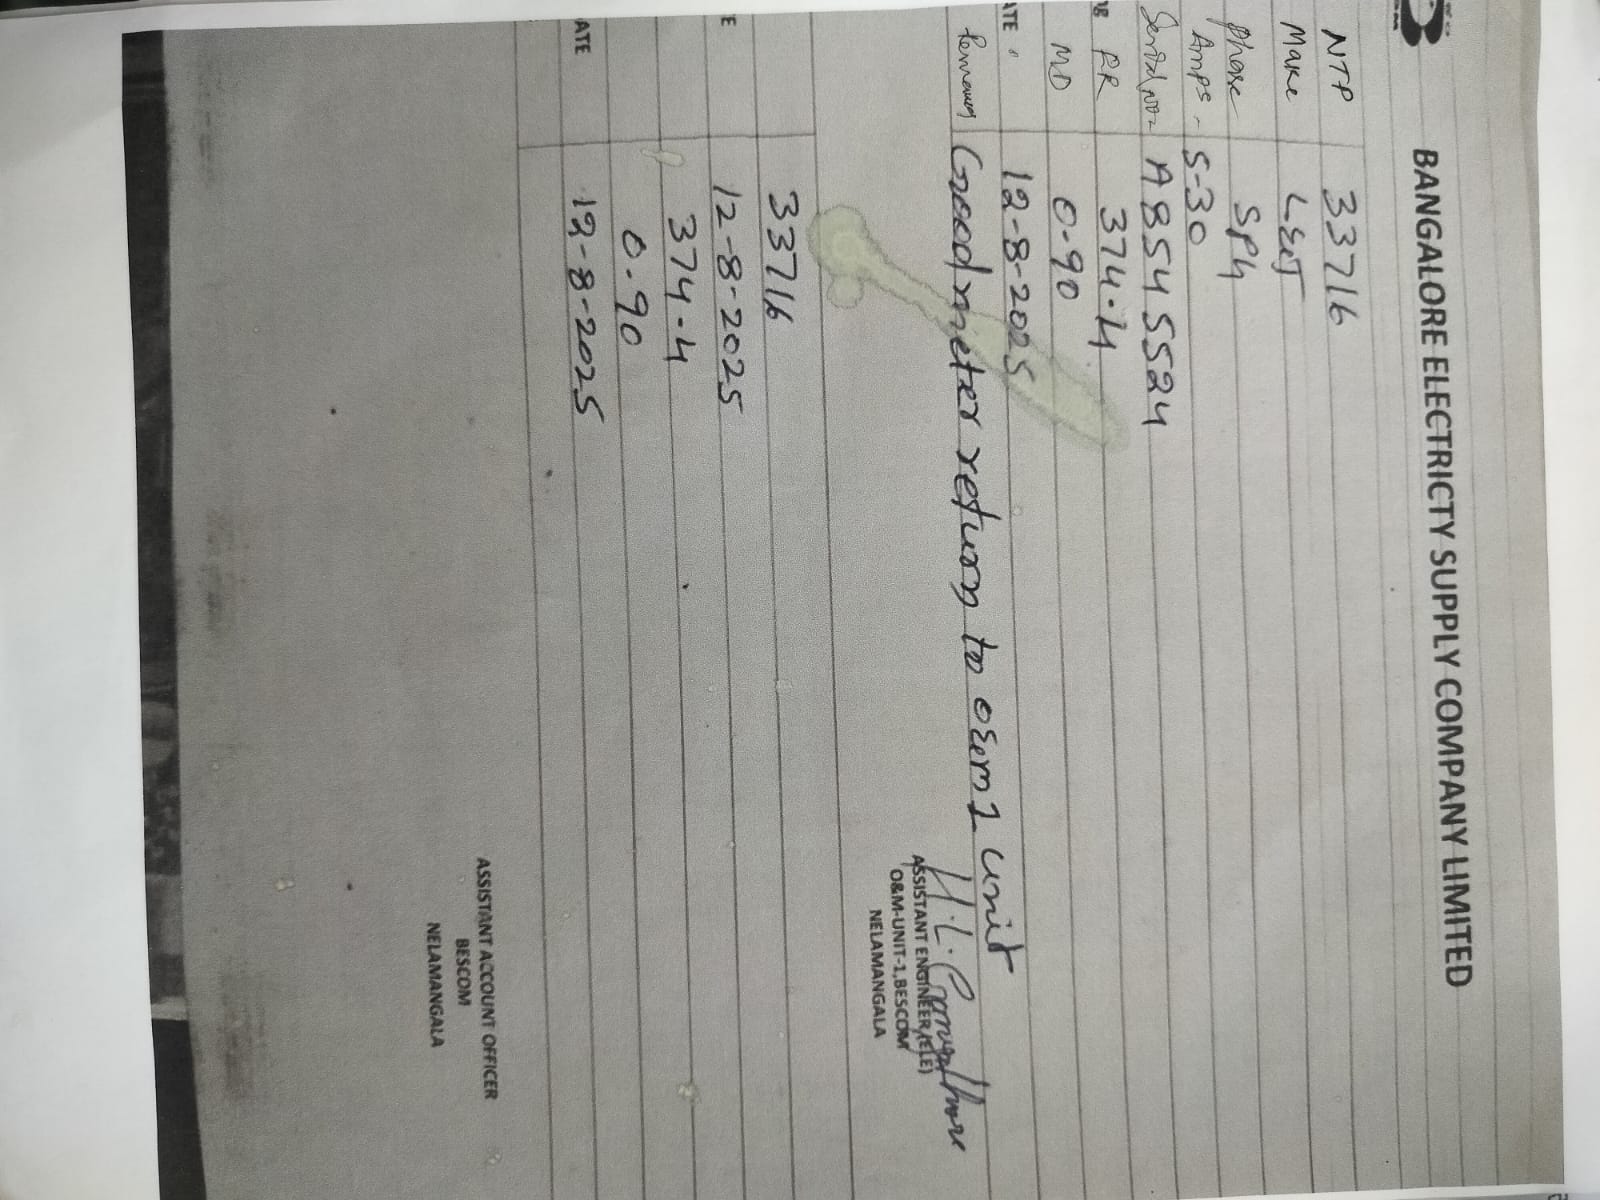 BANGALORE ELECTRICTY SUPPLY COMPANY LIMITED
NTP 33716
Make L&T
Phase SPH
Amps - 5-30
Serial no:- A8545524
RR 374.4
MD 0-90
ATE : 12-8-2025
Good meter return to O&M1 unit
ASSISTANT ENGINEER(ELE)
O&M-UNIT-1,BESCOM
NELAMANGALA
33716
E 12-8-2025
374-4
0.90
ATE 12-8-2025
ASSISTANT ACCOUNT OFFICER
BESCOM
NELAMANGALA